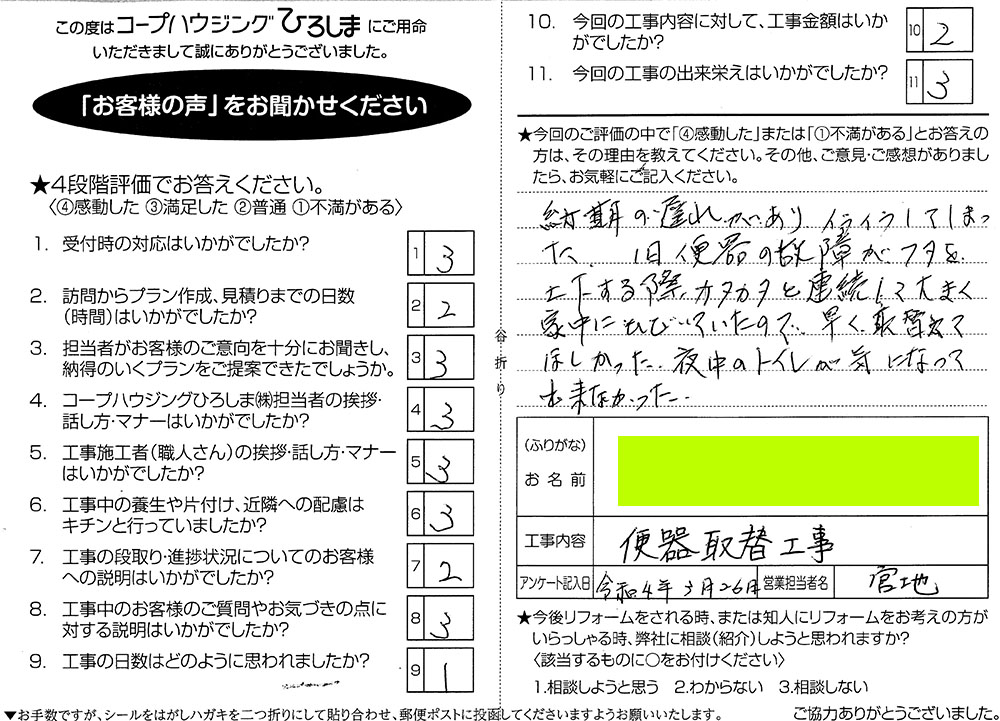 この度はコープハウジングひろしまにご用命
いただきまして誠にありがとうございました。
「お客様の声」をお聞かせください
★4段階評価でお答えください。
〈④感動した ③満足した ②普通 ①不満がある〉
1. 受付時の対応はいかがでしたか?
1 3
2. 訪問からプラン作成、見積りまでの日数
(時間)はいかがでしたか?
2 2
3. 担当者がお客様のご意向を十分にお聞きし、
納得のいくプランをご提案できたでしょうか。
3 3
4. コープハウジングひろしま㈱担当者の挨拶・
話し方・マナーはいかがでしたか?
4 3
5. 工事施工者(職人さん)の挨拶・話し方・マナー
はいかがでしたか?
5 3
6. 工事中の養生や片付け、近隣への配慮は
キチンと行っていましたか?
6 3
7. 工事の段取り・進捗状況についてのお客様
への説明はいかがでしたか?
7 2
8. 工事中のお客様のご質問やお気づきの点に
対する説明はいかがでしたか?
8 3
9. 工事の日数はどのように思われましたか?
9 1
▼お手数ですが、シールをはがしハガキを二つ折りにして貼り合わせ、郵便ポストに投函してくださいますようお願いいたします。
谷折り
10. 今回の工事内容に対して、工事金額はいか
がでしたか?
10 2
11. 今回の工事の出来栄えはいかがでしたか?
11 3
★今回のご評価の中で「④感動した」または「①不満がある」とお答えの
方は、その理由を教えてください。その他、ご意見・ご感想がありまし
たら、お気軽にご記入ください。
納期の遅れがあり イライラしてしまっ
た、 旧便器の故障がフタを
上下する際、カタカタと連続して大きく
家中にひびいていたので、早く取替えて
ほしかった。夜中のトイレが気になって
出来なかった。
(ふりがな)
お名前
工事内容
便器取替工事
アンケート記入日 令和4年3月26日 営業担当者名 宮地
★今後リフォームをされる時、または知人にリフォームをお考えの方が
いらっしゃる時、弊社に相談(紹介)しようと思われますか?
〈該当するものに○をお付けください〉
1.相談しようと思う 2.わからない 3.相談しない
ご協力ありがとうございました。